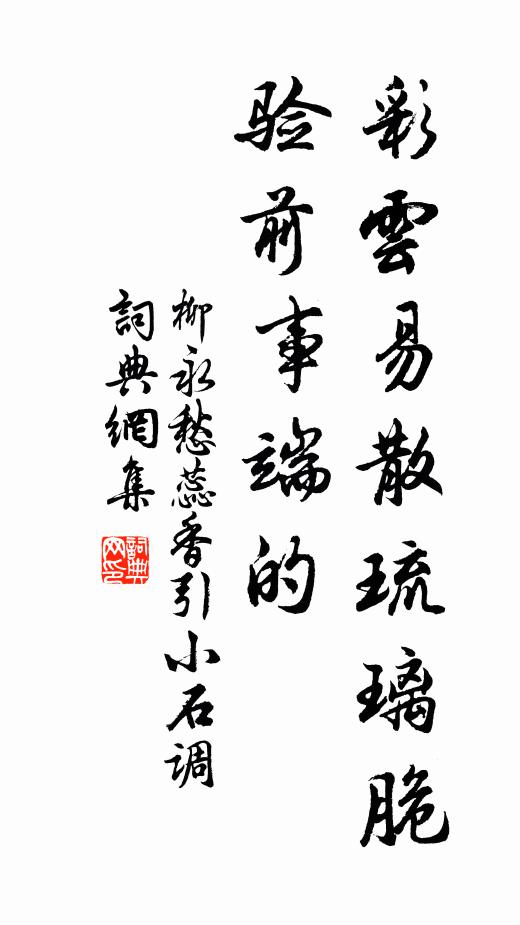 彩雲易散琉璃脆
验前事端的
柳永愁蕊香引小石调
詞典網集
詞典
网印